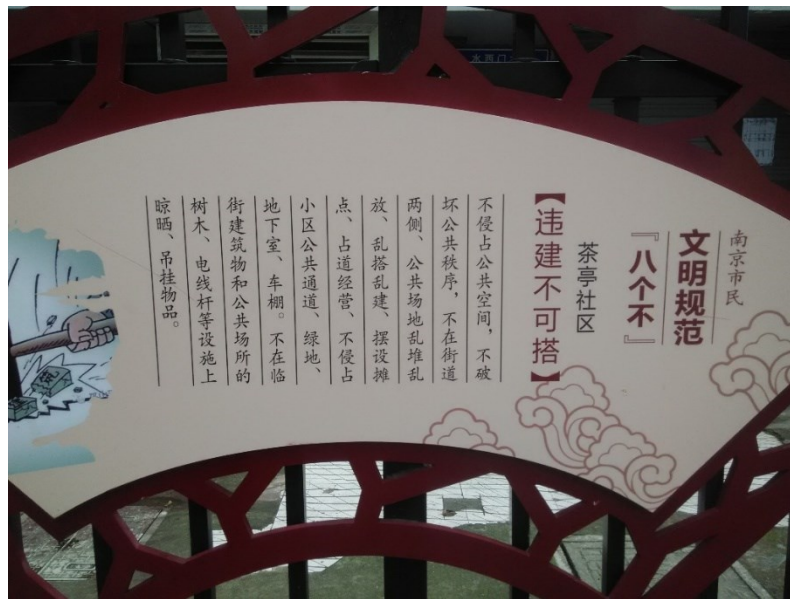 南京市民
文明规范
『八个不』
茶亭社区
【违建不可搭】
不侵占公共空间，不破
坏公共秩序，不在街道
两侧、公共场地乱堆乱
放、乱搭乱建、摆设摊
点、占道经营、不侵占
小区公共通道、绿地、
地下室、车棚。不在临
街建筑物和公共场所的
树木、电线杆等设施上
晾晒、吊挂物品。